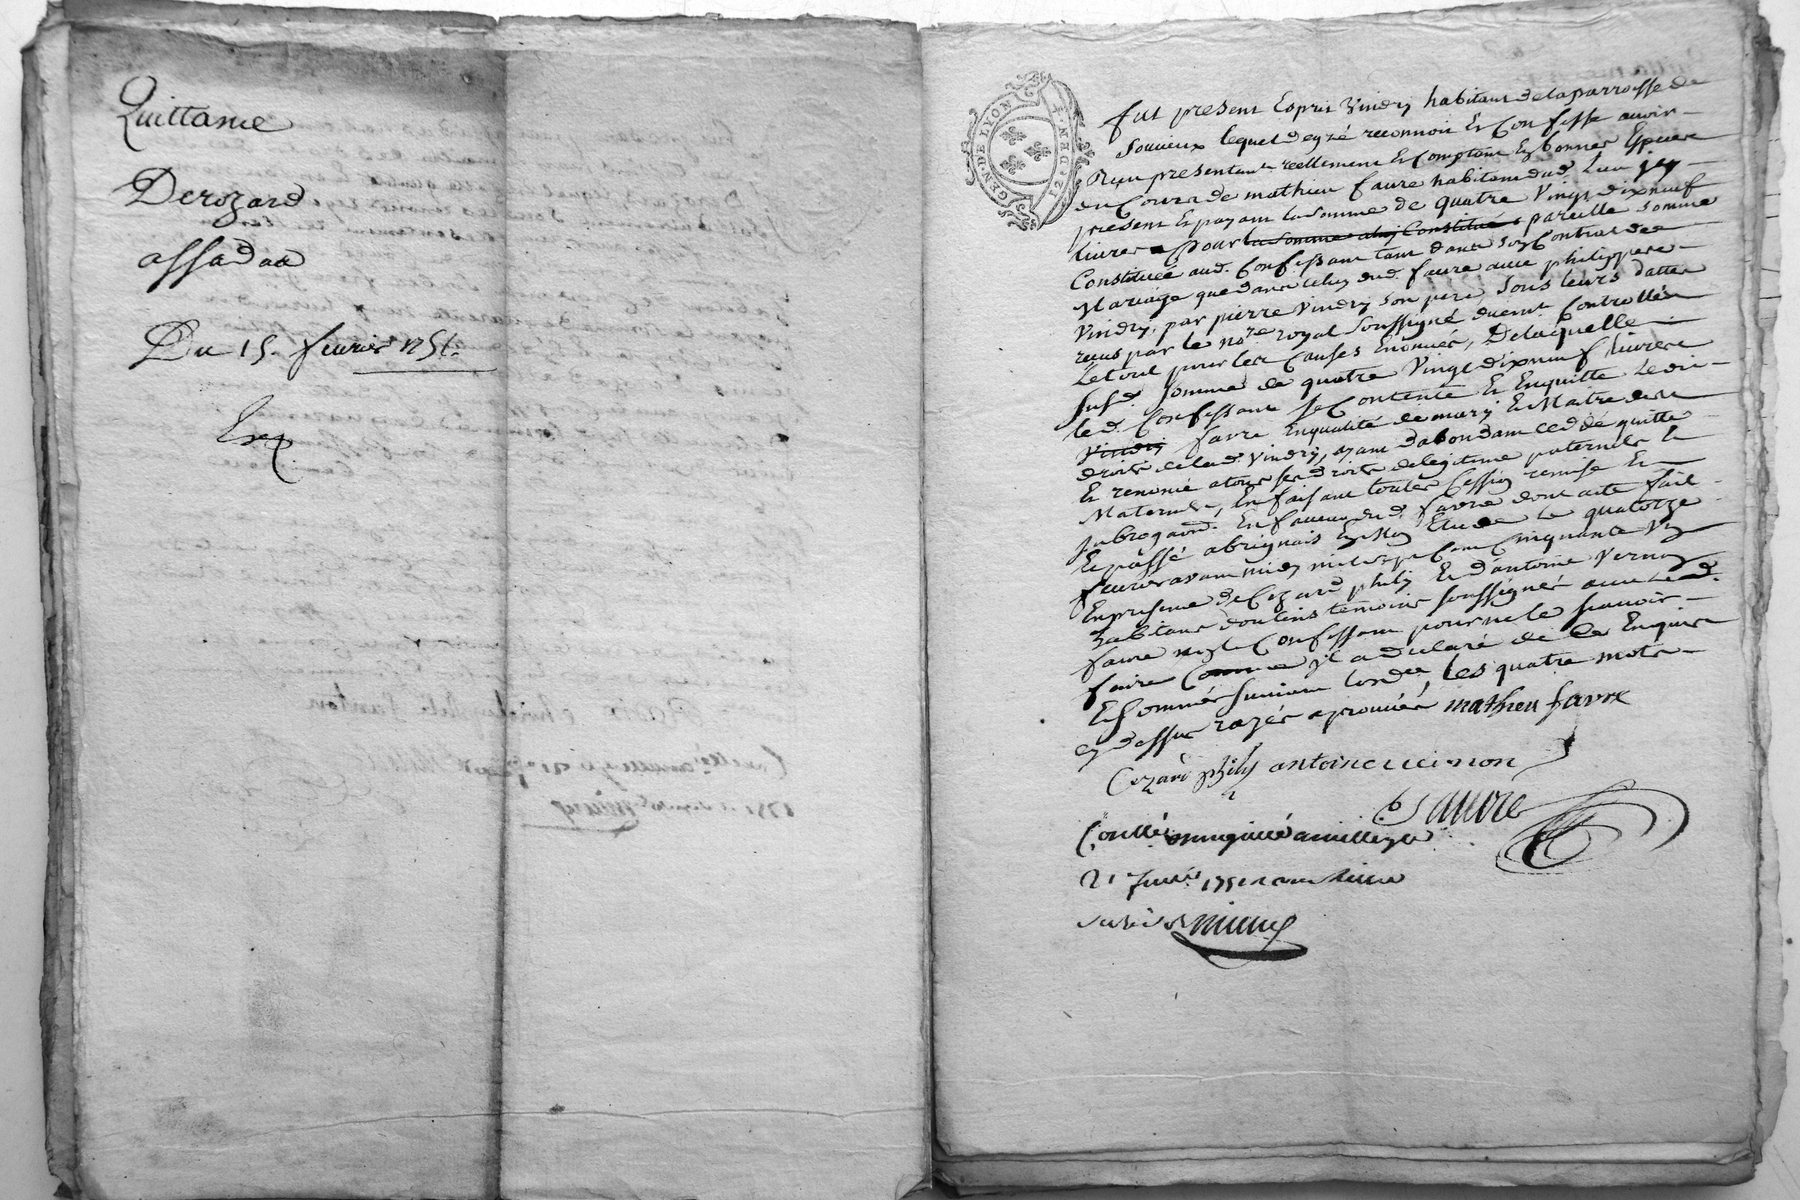 Quittance
Derozard
assadaa
Du 15. fevrier 1751.
Exp
GEN. DE LYON
12. DEN. F.
fut present Esprit Vindry habitant de la parroisse de
Souveux lequel de gré reconnoit Et Confesse avoir
Reçu presentemt. reellement Et Comptant Ez bonnes Especes
du Cours de mathieu faure habitant dud. Lieu jcy
present Et payant la somme de quatre Vingt dixneuf
livres Pour la somme pareille somme
Constituée aud. Confessant tant dans son Contrat de
Mariage que dans celuy dud. faure avec philippe
Vindry, par pierre Vindry son pere, sous leurs dattes
recus par le nore. royal soussigné duemt. Controllés
Le tout pour les Causes Enoncées, De laquelle
susd. somme de quatre Vingt dixneuf livres
led. Confessant se Contente Et En quitte Ledit
Vindry favre En qualité de mary Et Maitre des
droits de lad. Vindry, ayant dabondant Cedé quitté
Et renoncé a tous ses droits de legitime paternels Et
Maternels, En faisant toutes Cession remise Et
subrogaon. En faveur dud. favre dont acte fait
Et passé a brignais En Mon Etude Le quatorze
fevrier avant midy mil sept Cent Cinquante Un
En presence de Cezard phily Et d'antoine Vernon
habitans temoins soussignés avec Led.
faure non le Confessant pour ne le scavoir
faire Comme jl a declaré de ce Enquis
Et sommé suivant Lordce, Les quatre mots
cy dessus rayés aprouvés mathieu favre
Cezard phily antoine vernon
favre
Conllé
21 fevrier 1751